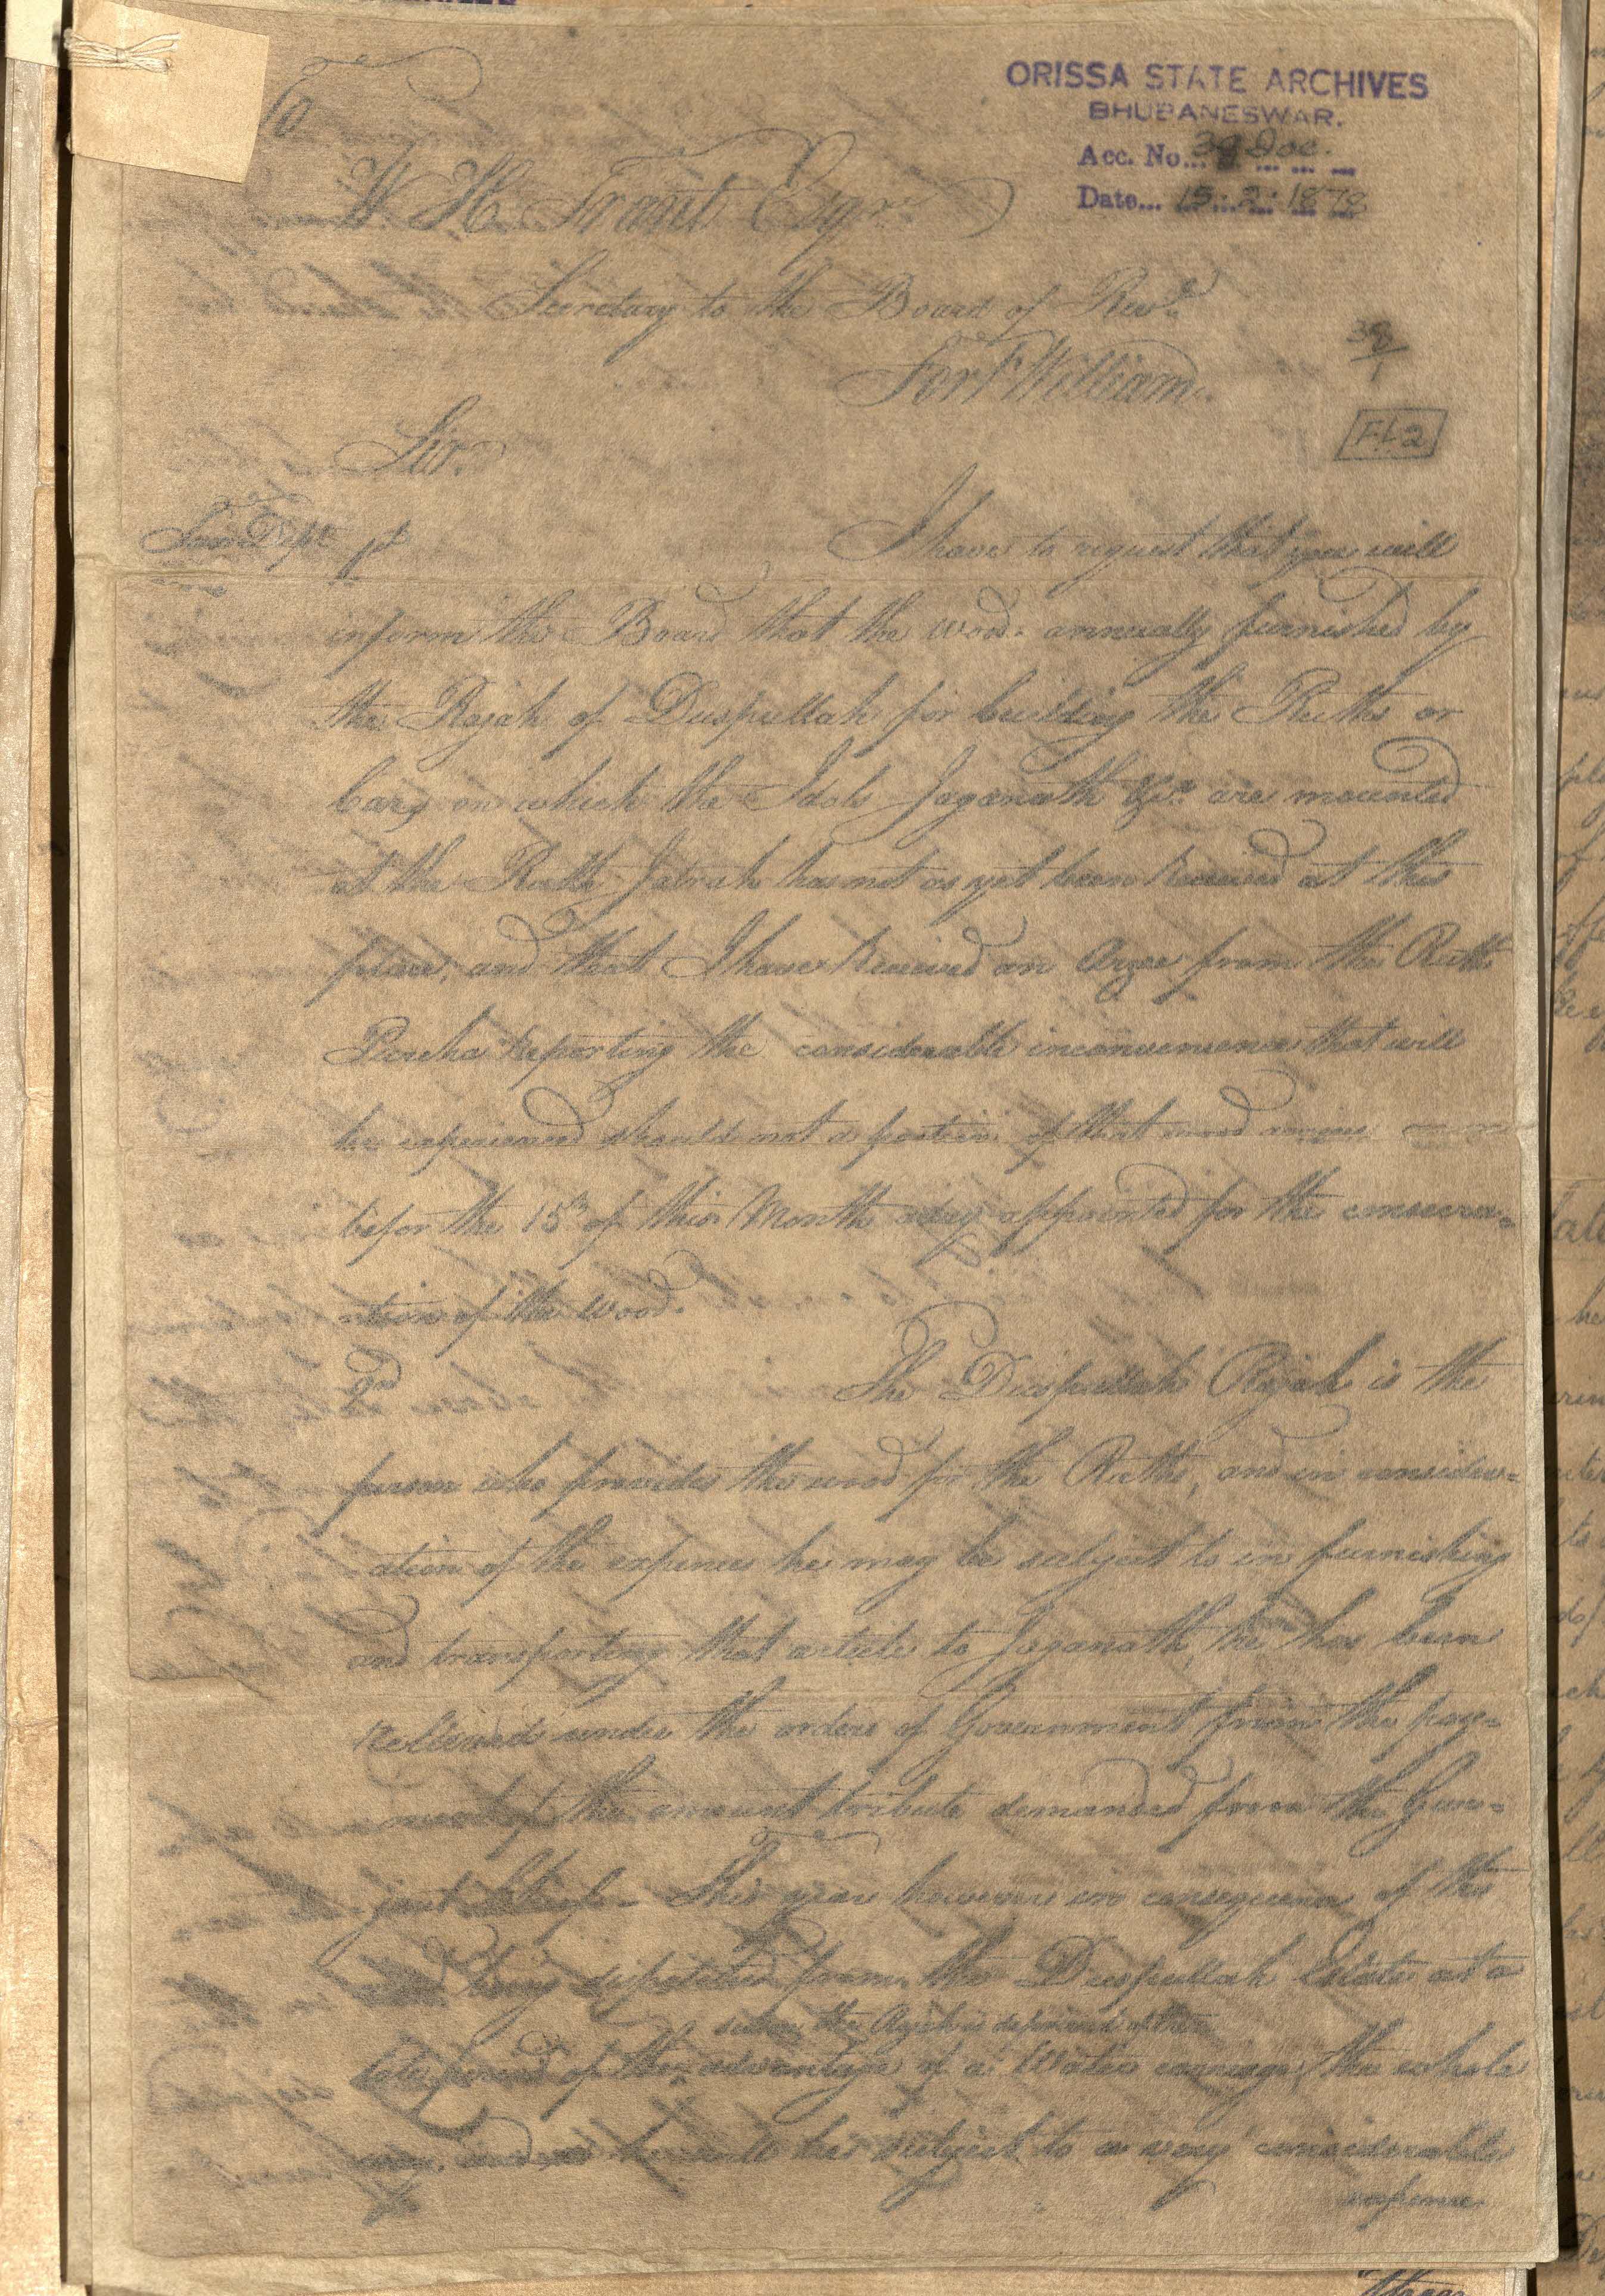 To
ORISSA STATE ARCHIVES
BHUBANESWAR.
Acc. No... 39 Doc.
Date... 15.2.1878
W. H. Trant Esqr.
Secretary to the Board of Reve.
Fort William.
39/1
Fl. 2
Sir.
1st I have to request that you will
inform the Board that the wood annually furnished by
the Rajah of Duspullah for building the Ruths or
Cars on which the Idols Jaganath &ca. are mounted
at the Ruth Jatrah has not as yet been received at this
place, and that I have received an Arzee from the Ruth
reporting the considerable inconvenience that will
be experienced should not a portion of that wood arrive
befor the 15th of this Month a day appointed for the
of the wood.
2nd The Duspullah Rajah is the
person who provides the wood for the Ruths, and in consider=
ation of the expence he may be subject to in furnishing
and transporting that article to Jaganath, he has been
relieved under the orders of Government from the pay=
ment of the amount tribute demanded from the Gur=
jaut This year however in consequence of the
being from the Duspullah Estate at a
when the Rajah is deprived of the
of the advantage of a Water carriage, the whole
way and he will be subject to a very considerable
expence